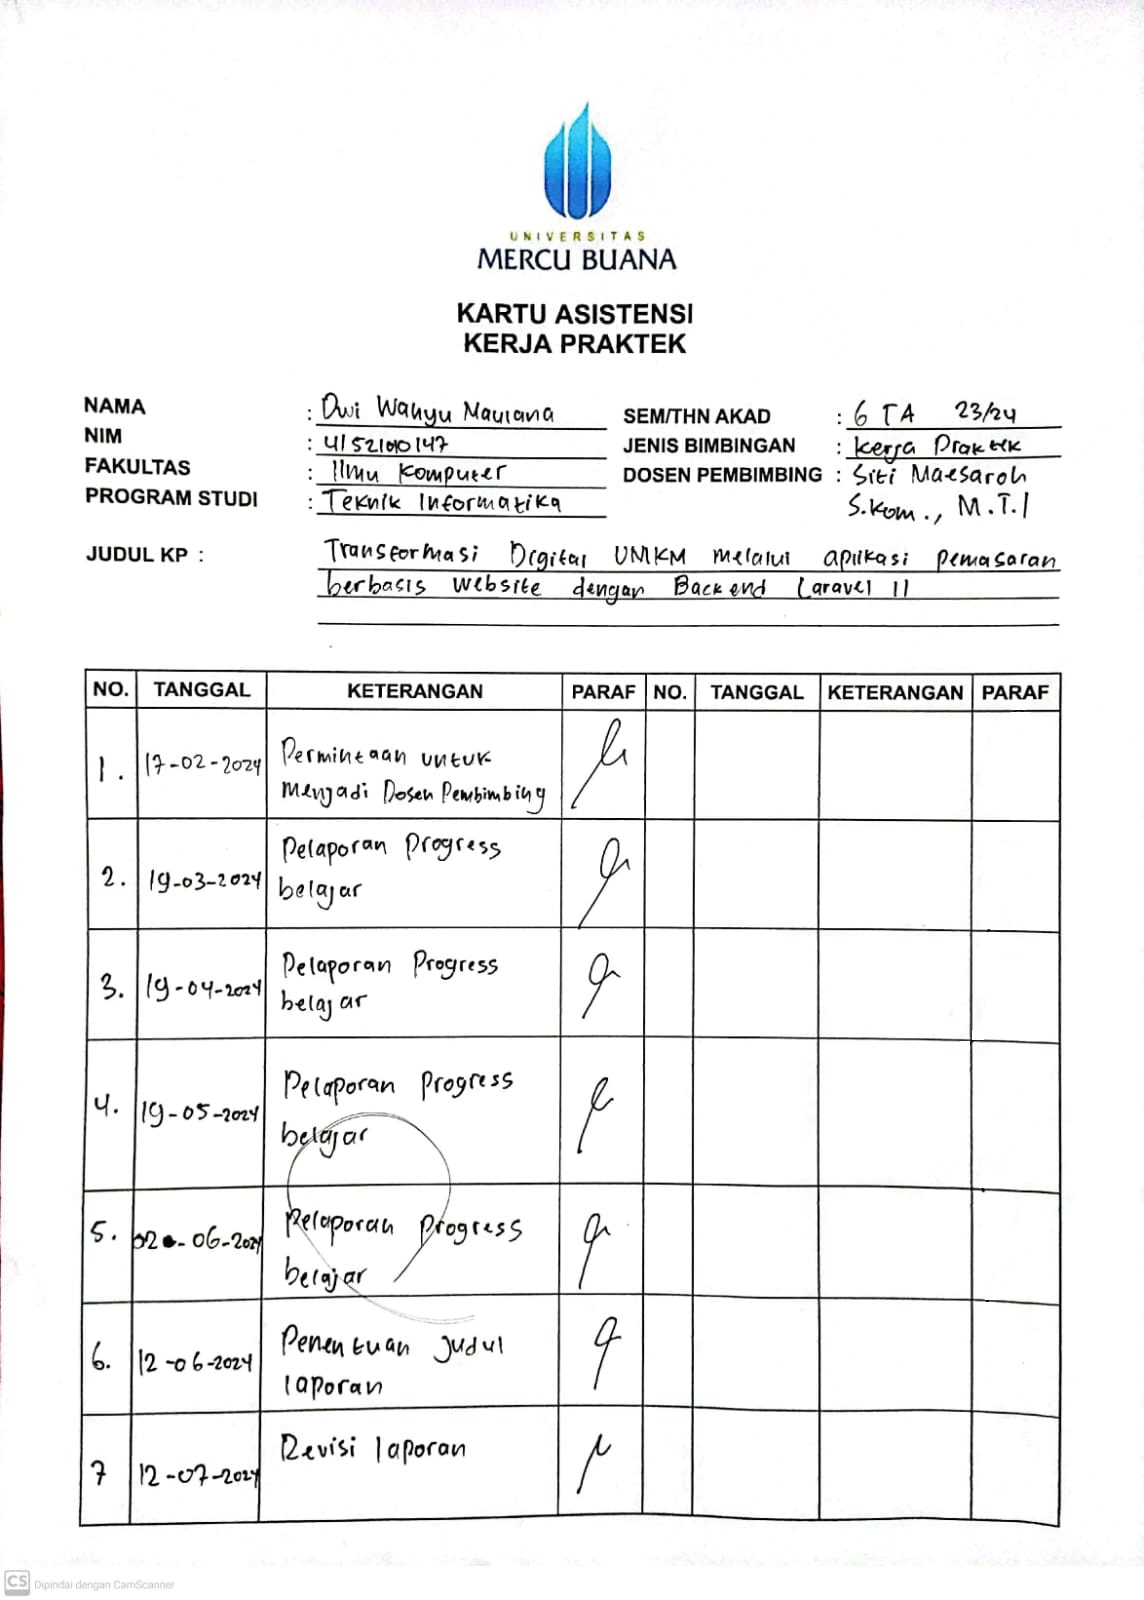 UNIVERSITAS
MERCU BUANA
KARTU ASISTENSI
KERJA PRAKTEK
NAMA : Dwi Wahyu Maulana
NIM : 41521010147
FAKULTAS : Ilmu Komputer
PROGRAM STUDI : Teknik Informatika
SEM/THN AKAD : 6 TA 23/24
JENIS BIMBINGAN : Kerja Praktik
DOSEN PEMBIMBING : Siti Maesaroh
S.Kom., M.T.I
JUDUL KP : Transformasi Digital UMKM melalui aplikasi pemasaran
berbasis website dengan Backend Laravel 11
NO. TANGGAL KETERANGAN PARAF NO. TANGGAL KETERANGAN PARAF
1. 17-02-2024 Permintaan untuk
Menjadi Dosen Pembimbing
2. 19-03-2024 Pelaporan Progress
belajar
3. 19-04-2024 Pelaporan Progress
belajar
4. 19-05-2024 Pelaporan Progress
belajar
5. 02-06-2024 Pelaporan Progress
belajar
6. 12-06-2024 Penentuan Judul
laporan
7 12-07-2024 Revisi laporan
CS Dipindai dengan CamScanner